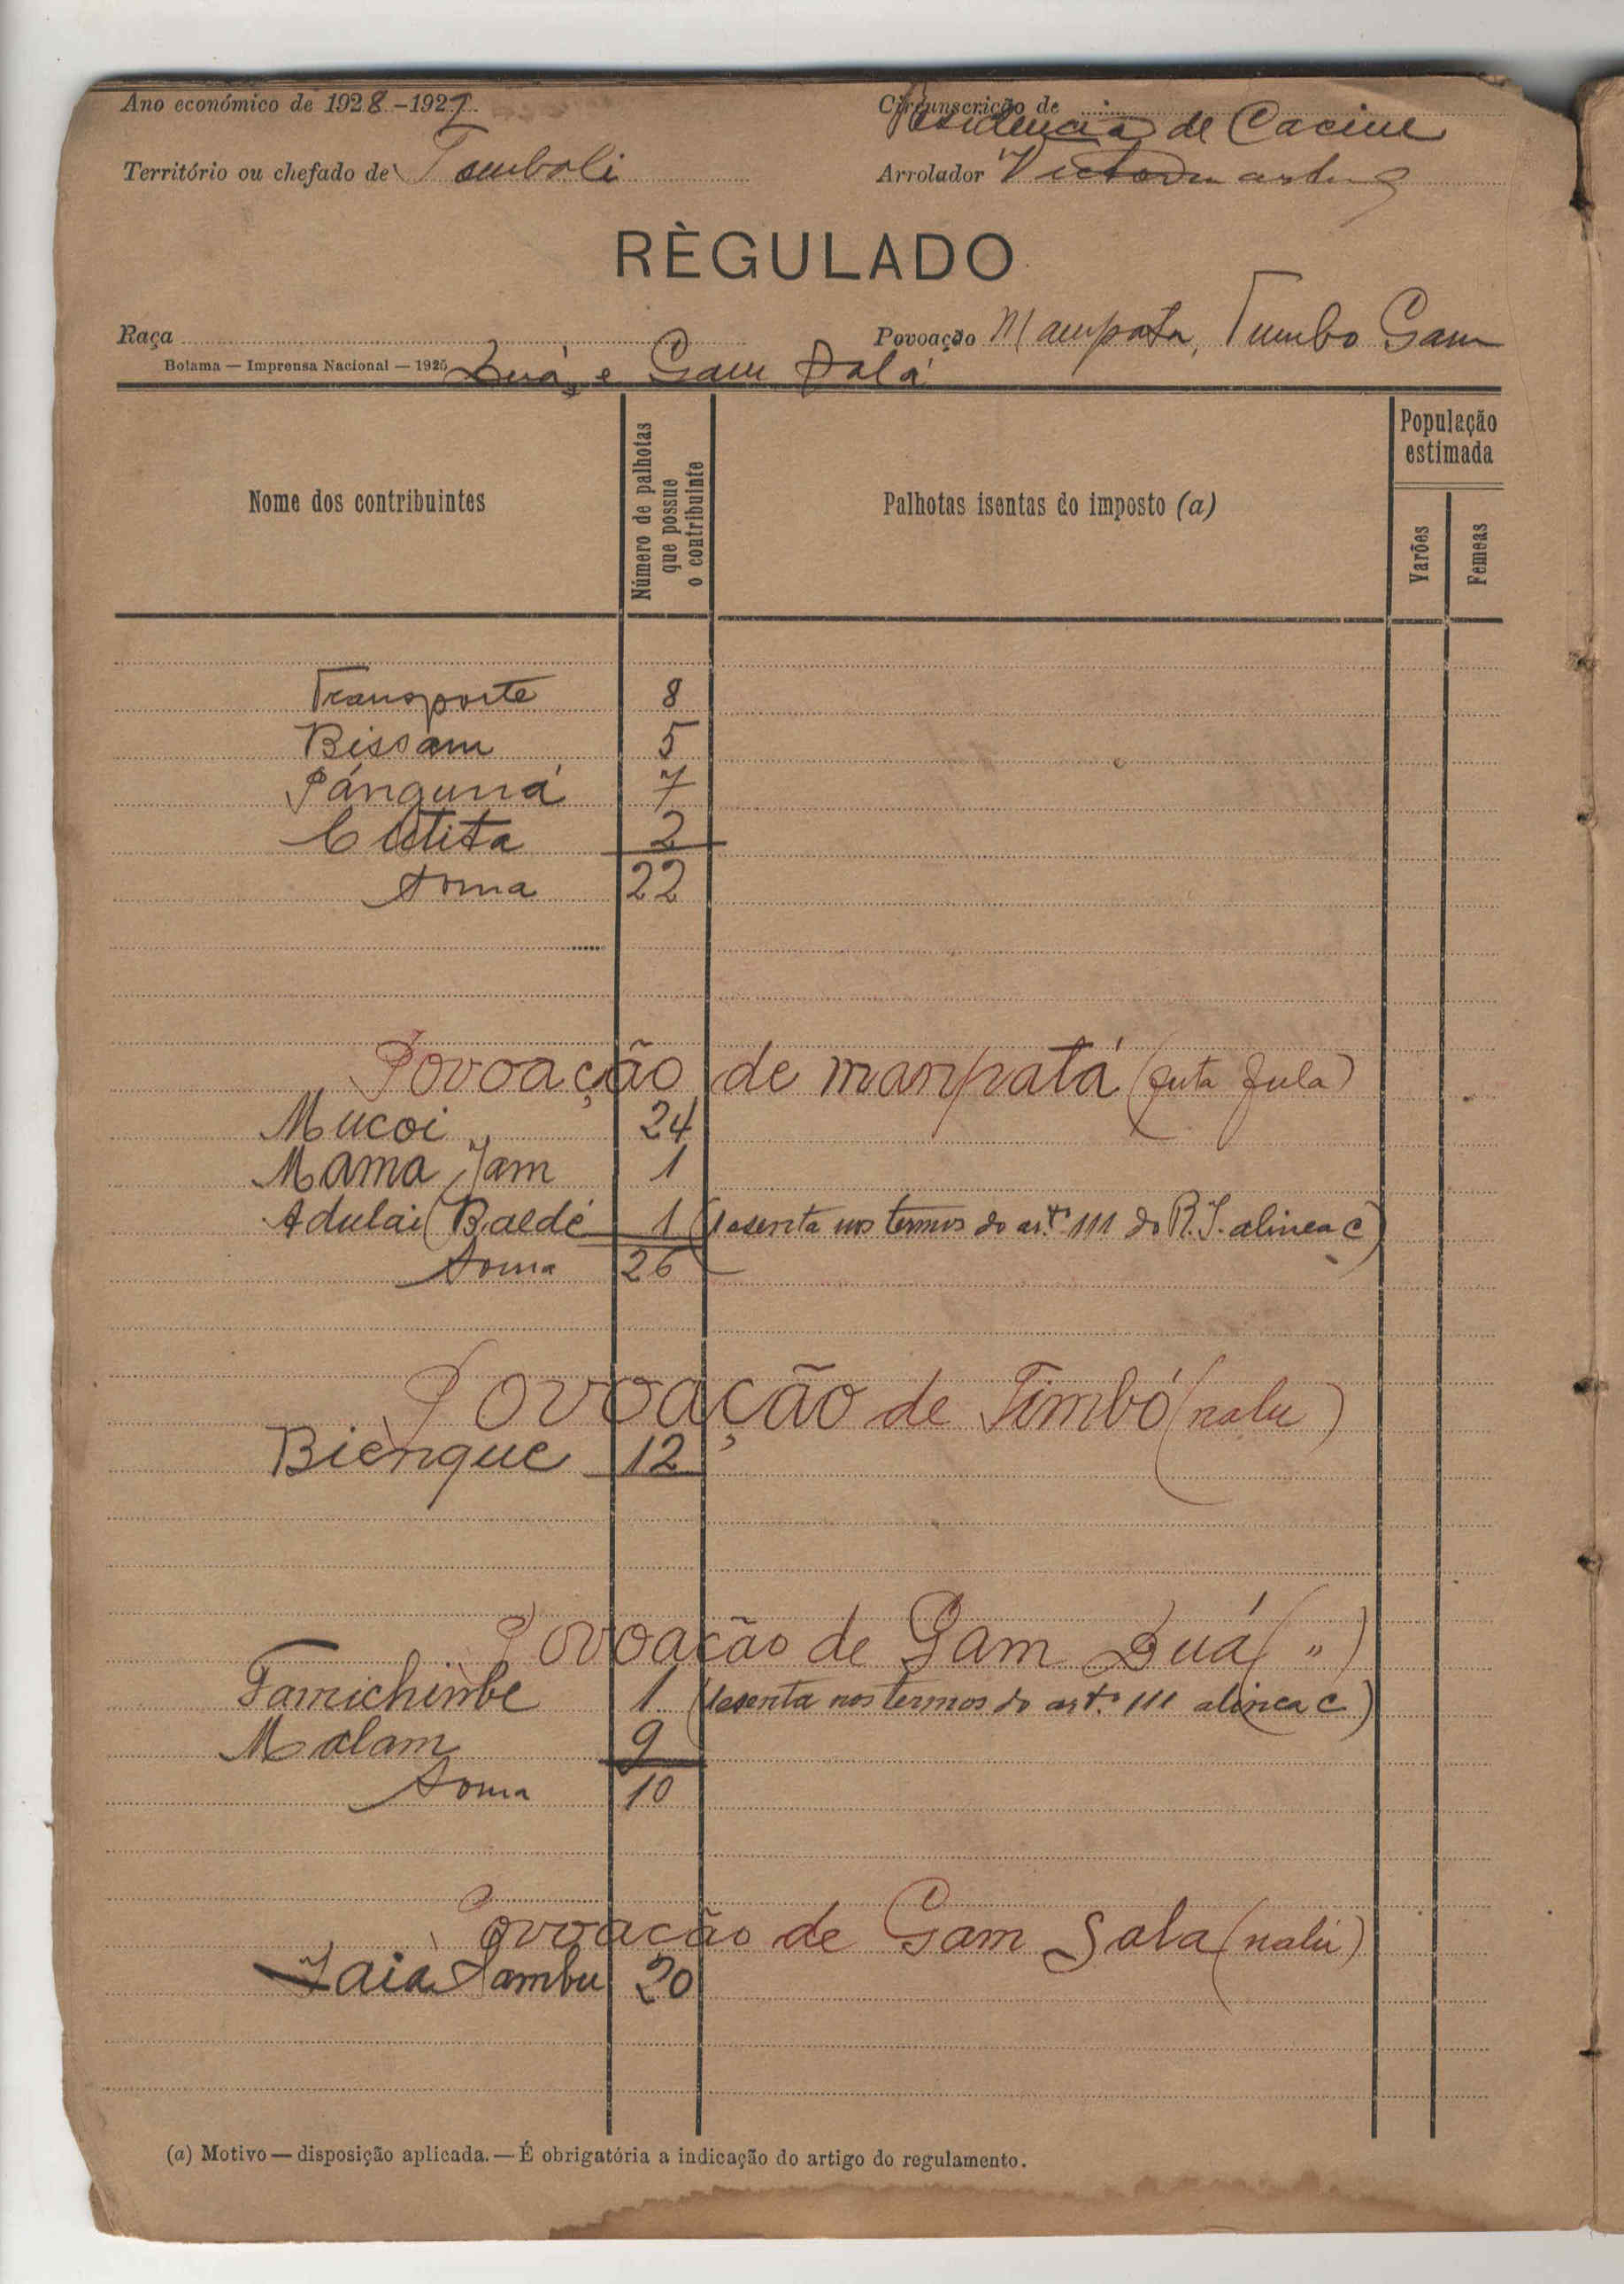 Ano económico de 1928-1927
Circunscrição de
Residencia de Cacine
Território ou chefado de Tomboli
Arrolador Victor Martins
RÈGULADO
Raça
Povoação Mampata, Tumbo Gam
Bolama — Imprensa Nacional — 1925
Duá, e Gam Salá
Nome dos contribuintes
Número de palhotas
que possue
o contribuinte
Palhotas isentas do imposto (a)
População
estimada
Varões
Femeas
Transporte 8
Bissam 5
Pánguná 7
2
Soma 22
Povoação de manpatá (futa fula)
Mucoi 24
Mama Jam 1
Adulai Baldé 1 (Isenta nos termos do art.º 111 do R. I. alinea c)
Soma 26
Povoação de Timbó (nalu)
Biengue 12
Povoação de Gam Duá ( " )
Famichimbe 1 (Isenta nos termos do art.º 111 alinea c)
Malam 9
Soma 10
Povoacão de Gam Sala (nalú)
Jaiá Sambu 20
(a) Motivo — disposição aplicada. — É obrigatória a indicação do artigo do regulamento.